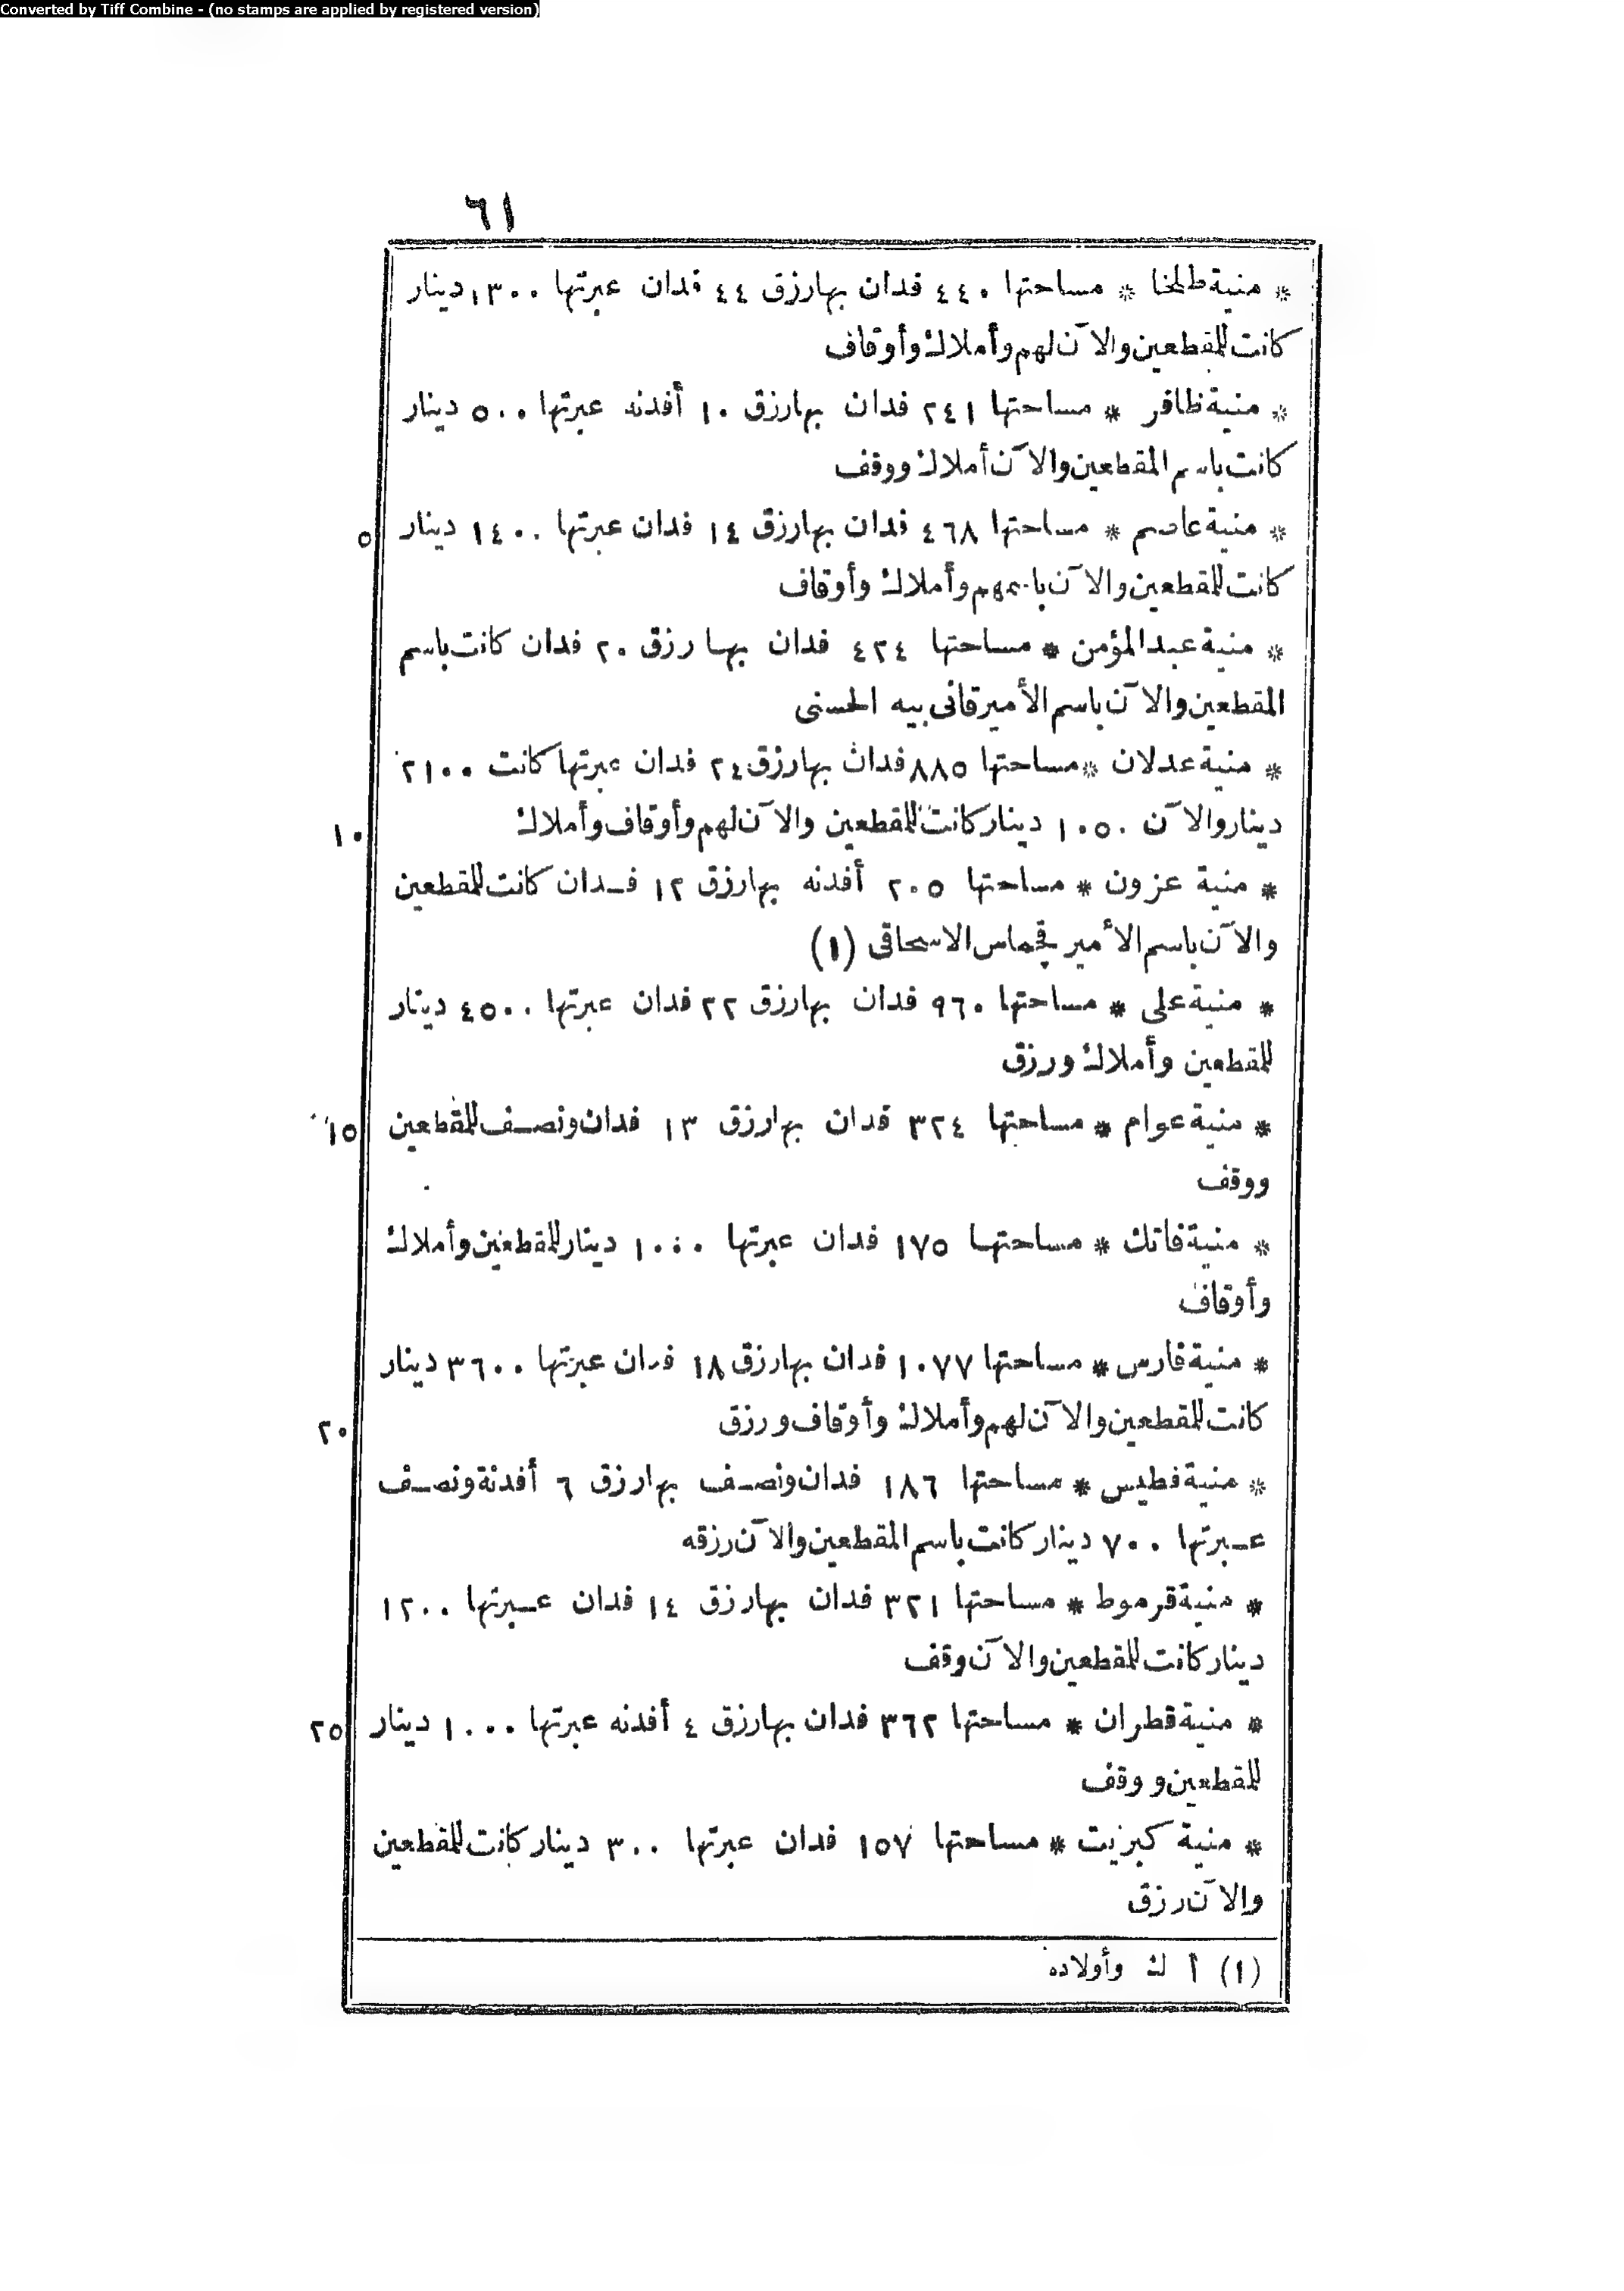 Converted by Tiff Combine - (no stamps are applied by registered version)
٦١
* منية طلخا * مساحتها ٤٤٠ فدان بها رزق ٤٤ فدان عبرتها ١٣٠٠ دينار
كانت للمقطعين والآن لهم وأملاك وأوقاف
* منية ظافر * مساحتها ٢٤١ فدان بها رزق ١٠ أفدنه عبرتها ٥٠٠ دينار
كانت باسم المقطعين والآن أملاك ووقف
* منية عاصم * مساحتها ٤٦٨ فدان بها رزق ١٤ فدان عبرتها ١٤٠٠ دينار ٥
كانت للمقطعين والآن باسمهم وأملاك وأوقاف
* منية عبد المؤمن * مساحتها ٤٢٤ فدان بها رزق ٢٠ فدان كانت باسم
المقطعين والآن باسم الأمير قانى بيه الحسنى
* منية عدلان * مساحتها ٨٨٥ فدان بها رزق ٢٤ فدان عبرتها كانت ٢١٠٠
دينار والآن ١٠٥٠ دينار كانت للمقطعين والآن لهم وأوقاف وأملاك ١٠
* منية عزون * مساحتها ٢٠٥ أفدنه بها رزق ١٢ فدان كانت للمقطعين
والآن باسم الأمير قجماس الاسحاقى (١)
* منية على * مساحتها ٩٦٠ فدان بها رزق ٢٢ فدان عبرتها ٤٥٠٠ دينار
للمقطعين وأملاك ورزق
* منية عوام * مساحتها ٣٢٤ فدان بها رزق ١٣ فدان ونصف للمقطعين ١٥
ووقف
* منية فاتك * مساحتها ١٧٥ فدان عبرتها ١٠٠٠ دينار للمقطعين وأملاك
وأوقاف
* منية فارس * مساحتها ١٠٧٧ فدان بها رزق ١٨ فدان عبرتها ٣٦٠٠ دينار
كانت للمقطعين والآن لهم وأملاك وأوقاف ورزق ٢٠
* منية فطيس * مساحتها ١٨٦ فدان ونصف بها رزق ٦ أفدنة ونصف
عبرتها ٧٠٠ دينار كانت باسم المقطعين والآن رزقه
* منية قرموط * مساحتها ٣٢١ فدان بها رزق ١٤ فدان عبرتها ١٢٠٠
دينار كانت للمقطعين والآن وقف
* منية قطران * مساحتها ٣٦٢ فدان بها رزق ٤ أفدنه عبرتها ١٠٠٠ دينار ٢٥
للمقطعين ووقف
* منية كبريت * مساحتها ١٥٧ فدان عبرتها ٣٠٠ دينار كانت للمقطعين
والآن رزق
(١) أ ك وأولاده